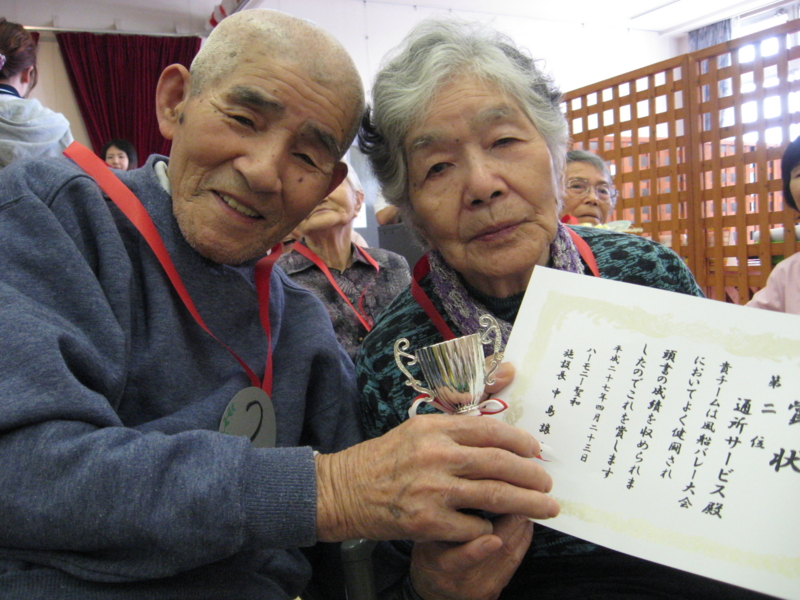 賞状
第二位
通所サービス殿
貴チームは風船バレー大会
においてよく健闘され
頭書の成績を収められま
したのでこれを賞します
平成二十七年四月二十三日
ハーモニー聖和
施設長 中島
2